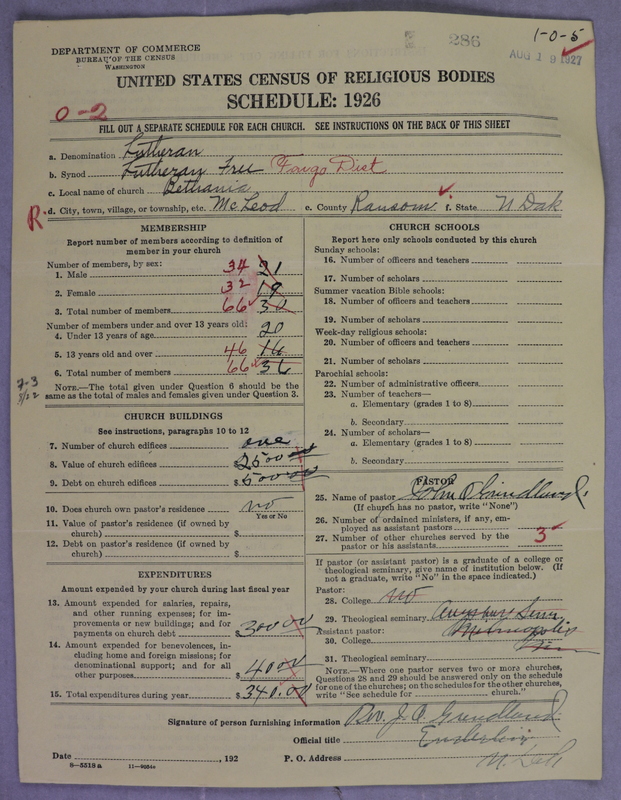 1-0-5
286
AUG 19 1927
DEPARTMENT OF COMMERCE
BUREAU OF THE CENSUS
WASHINGTON
UNITED STATES CENSUS OF RELIGIOUS BODIES
SCHEDULE: 1926
0-2
FILL OUT A SEPARATE SCHEDULE FOR EACH CHURCH. SEE INSTRUCTIONS ON THE BACK OF THIS SHEET
a. Denomination Lutheran
b. Synod Lutheran Free Fargo Dist
c. Local name of church Bethania
R. d. City, town, village, or township, etc. McLeod e. County Ransom f. State N Dak
MEMBERSHIP
Report number of members according to definition of
member in your church
Number of members, by sex:
1. Male 34 21
2. Female 32 19
3. Total number of members 66 30
Number of members under and over 13 years old:
4. Under 13 years of age 20
5. 13 years old and over 46 16
6. Total number of members 66 36
NOTE.—The total given under Question 6 should be the
same as the total of males and females given under Question 3.
CHURCH BUILDINGS
See instructions, paragraphs 10 to 12
7. Number of church edifices one
8. Value of church edifices $ 2500 00
9. Debt on church edifices $ 500 00
10. Does church own pastor's residence no
Yes or No
11. Value of pastor's residence (if owned by
church) $
12. Debt on pastor's residence (if owned by
church) $
EXPENDITURES
Amount expended by your church during last fiscal year
13. Amount expended for salaries, repairs,
and other running expenses; for im-
provements or new buildings; and for
payments on church debt $ 300 00
14. Amount expended for benevolences, in-
cluding home and foreign missions; for
denominational support; and for all
other purposes $ 40 00
15. Total expenditures during year $ 340.00
CHURCH SCHOOLS
Report here only schools conducted by this church
Sunday schools:
16. Number of officers and teachers
17. Number of scholars
Summer vacation Bible schools:
18. Number of officers and teachers
19. Number of scholars
Week-day religious schools:
20. Number of officers and teachers
21. Number of scholars
Parochial schools:
22. Number of administrative officers
23. Number of teachers—
a. Elementary (grades 1 to 8)
b. Secondary
24. Number of scholars—
a. Elementary (grades 1 to 8)
b. Secondary
PASTOR
25. Name of pastor John
(If church has no pastor, write "None")
26. Number of ordained ministers, if any, em-
ployed as assistant pastors
27. Number of other churches served by the
pastor or his assistants 3
If pastor (or assistant pastor) is a graduate of a college or
theological seminary, give name of institution below. (If
not a graduate, write "No" in the space indicated.)
Pastor:
28. College no
29. Theological seminary Augsburg Sem
Assistant pastor: Minneapolis
30. College
31. Theological seminary
NOTE.—Where one pastor serves two or more churches,
Questions 28 and 29 should be answered only on the schedule
for one of the churches; on the schedules for the other churches,
write "See schedule for church."
Signature of person furnishing information Rev. J. O. Grundland
Official title Enderlin
Date , 192 P. O. Address N. Dak
8-5518 a